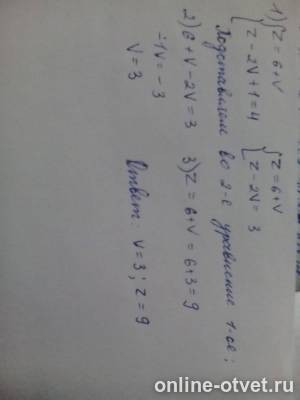 1) { z = 6 + v   { z = 6 + v
{ z - 2v + 1 = 4   { z - 2v = 3
Подставляем во 2-е уравнение 1-ое:
2) 6 + v - 2v = 3   3) z = 6 + v = 6 + 3 = 9
-1v = -3
v = 3   Ответ: v = 3; z = 9
online-otvet.ru